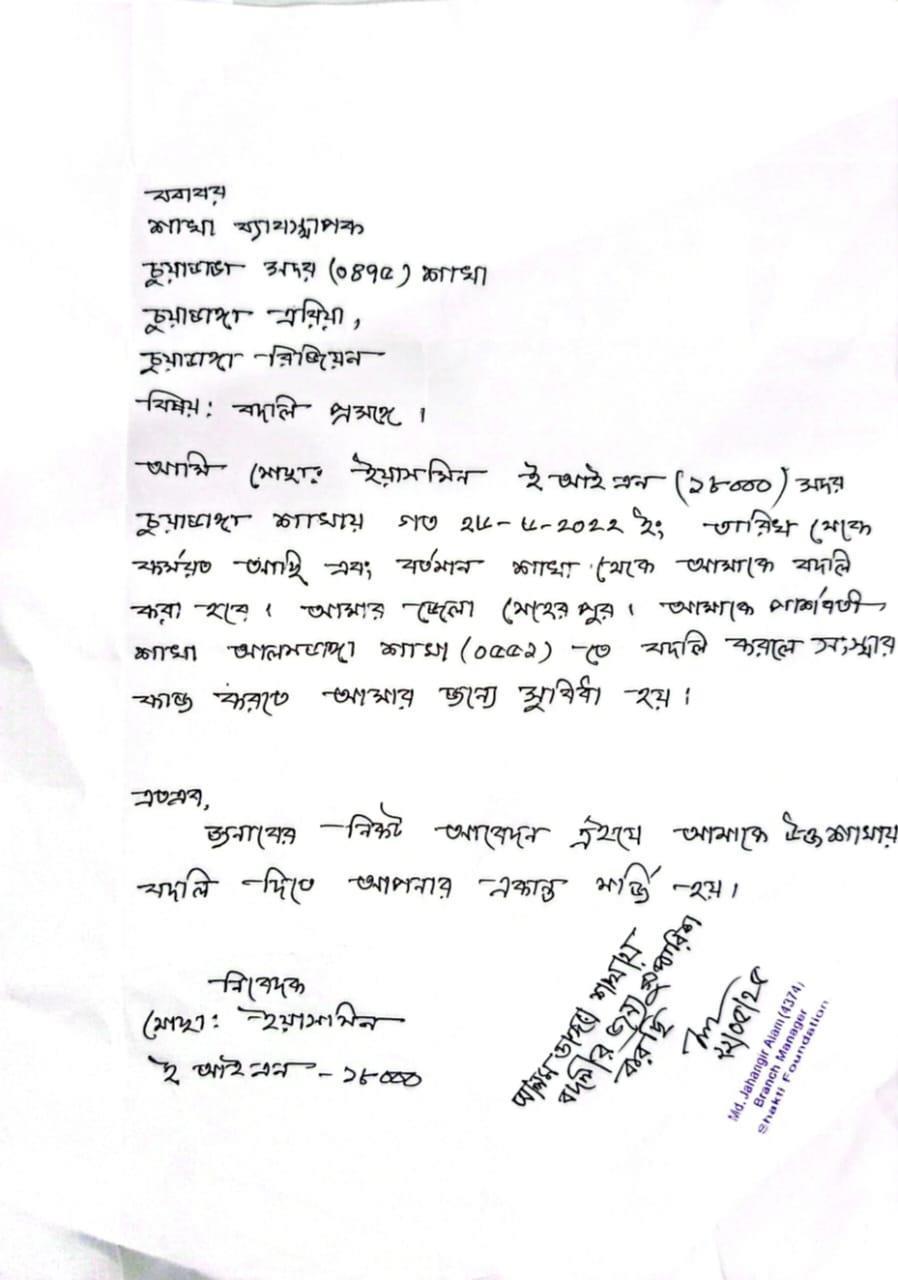 বরাবর
শাখা ব্যাবস্থাপক
চুয়াডাঙ্গা সদর (০৪৭৫) শাখা
চুয়াডাঙ্গা এরিয়া,
চুয়াডাঙ্গা রিজিয়ন
বিষয়: বদলি প্রসঙ্গে ।
আমি মোছাঃ ইয়াসমিন ই আই এন (১৮০০০) সদর
চুয়াডাঙ্গা শাখায় গত ২৮-৮-২০২২ ইং তারিখ থেকে
কর্মরত আছি এবং বর্তমান শাখা থেকে আমাকে বদলি
করা হবে । আমার জেলা মেহেরপুর । আমাকে পার্শবর্তী
শাখা আলমডাঙ্গা শাখা (০৫৫২) -তে বদলি করলে সংস্থার
কাজ করতে আমার জন্যে সুবিধা হয় ।
এতএব,
জনাবের নিকট আবেদন এইযে আমাকে উক্ত শাখায়
বদলি দিতে আপনার একান্ত মর্জি হয় ।
নিবেদক
মোছা: ইয়াসমিন
ই আই এন - ১৮০০০
আলমডাঙ্গা শাখায়
বদলীর জন্য সুপারিশ
করছি
২২/০৫/২৫
Md. Jahangir Alam (4374)
Branch Manager
Shakti Foundation